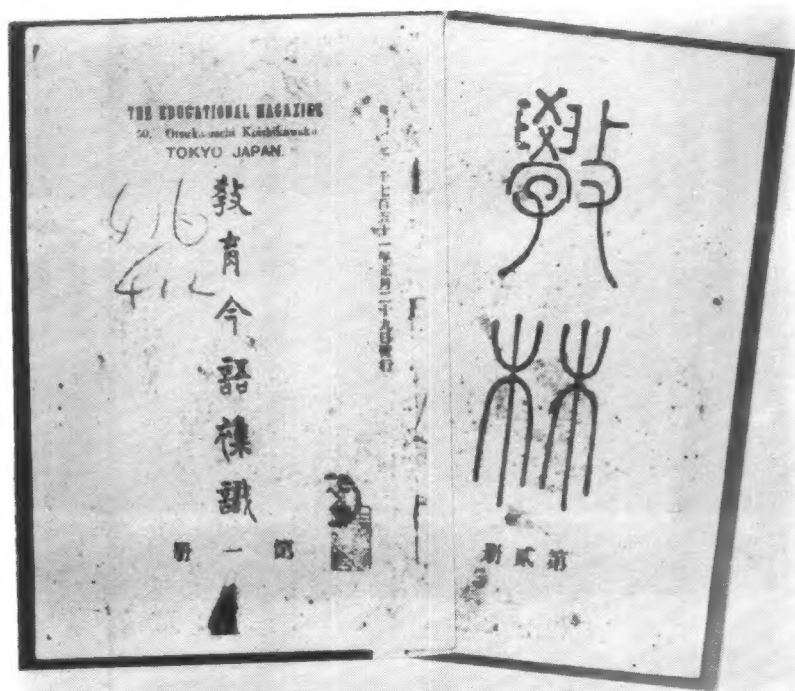 THE EDUCATIONAL MAGAZINE
50, Otsuka-machi Koishikawaku
TOKYO JAPAN.
教育今語襍識
第一冊
年正月二十九日發行
斆林
第貳冊